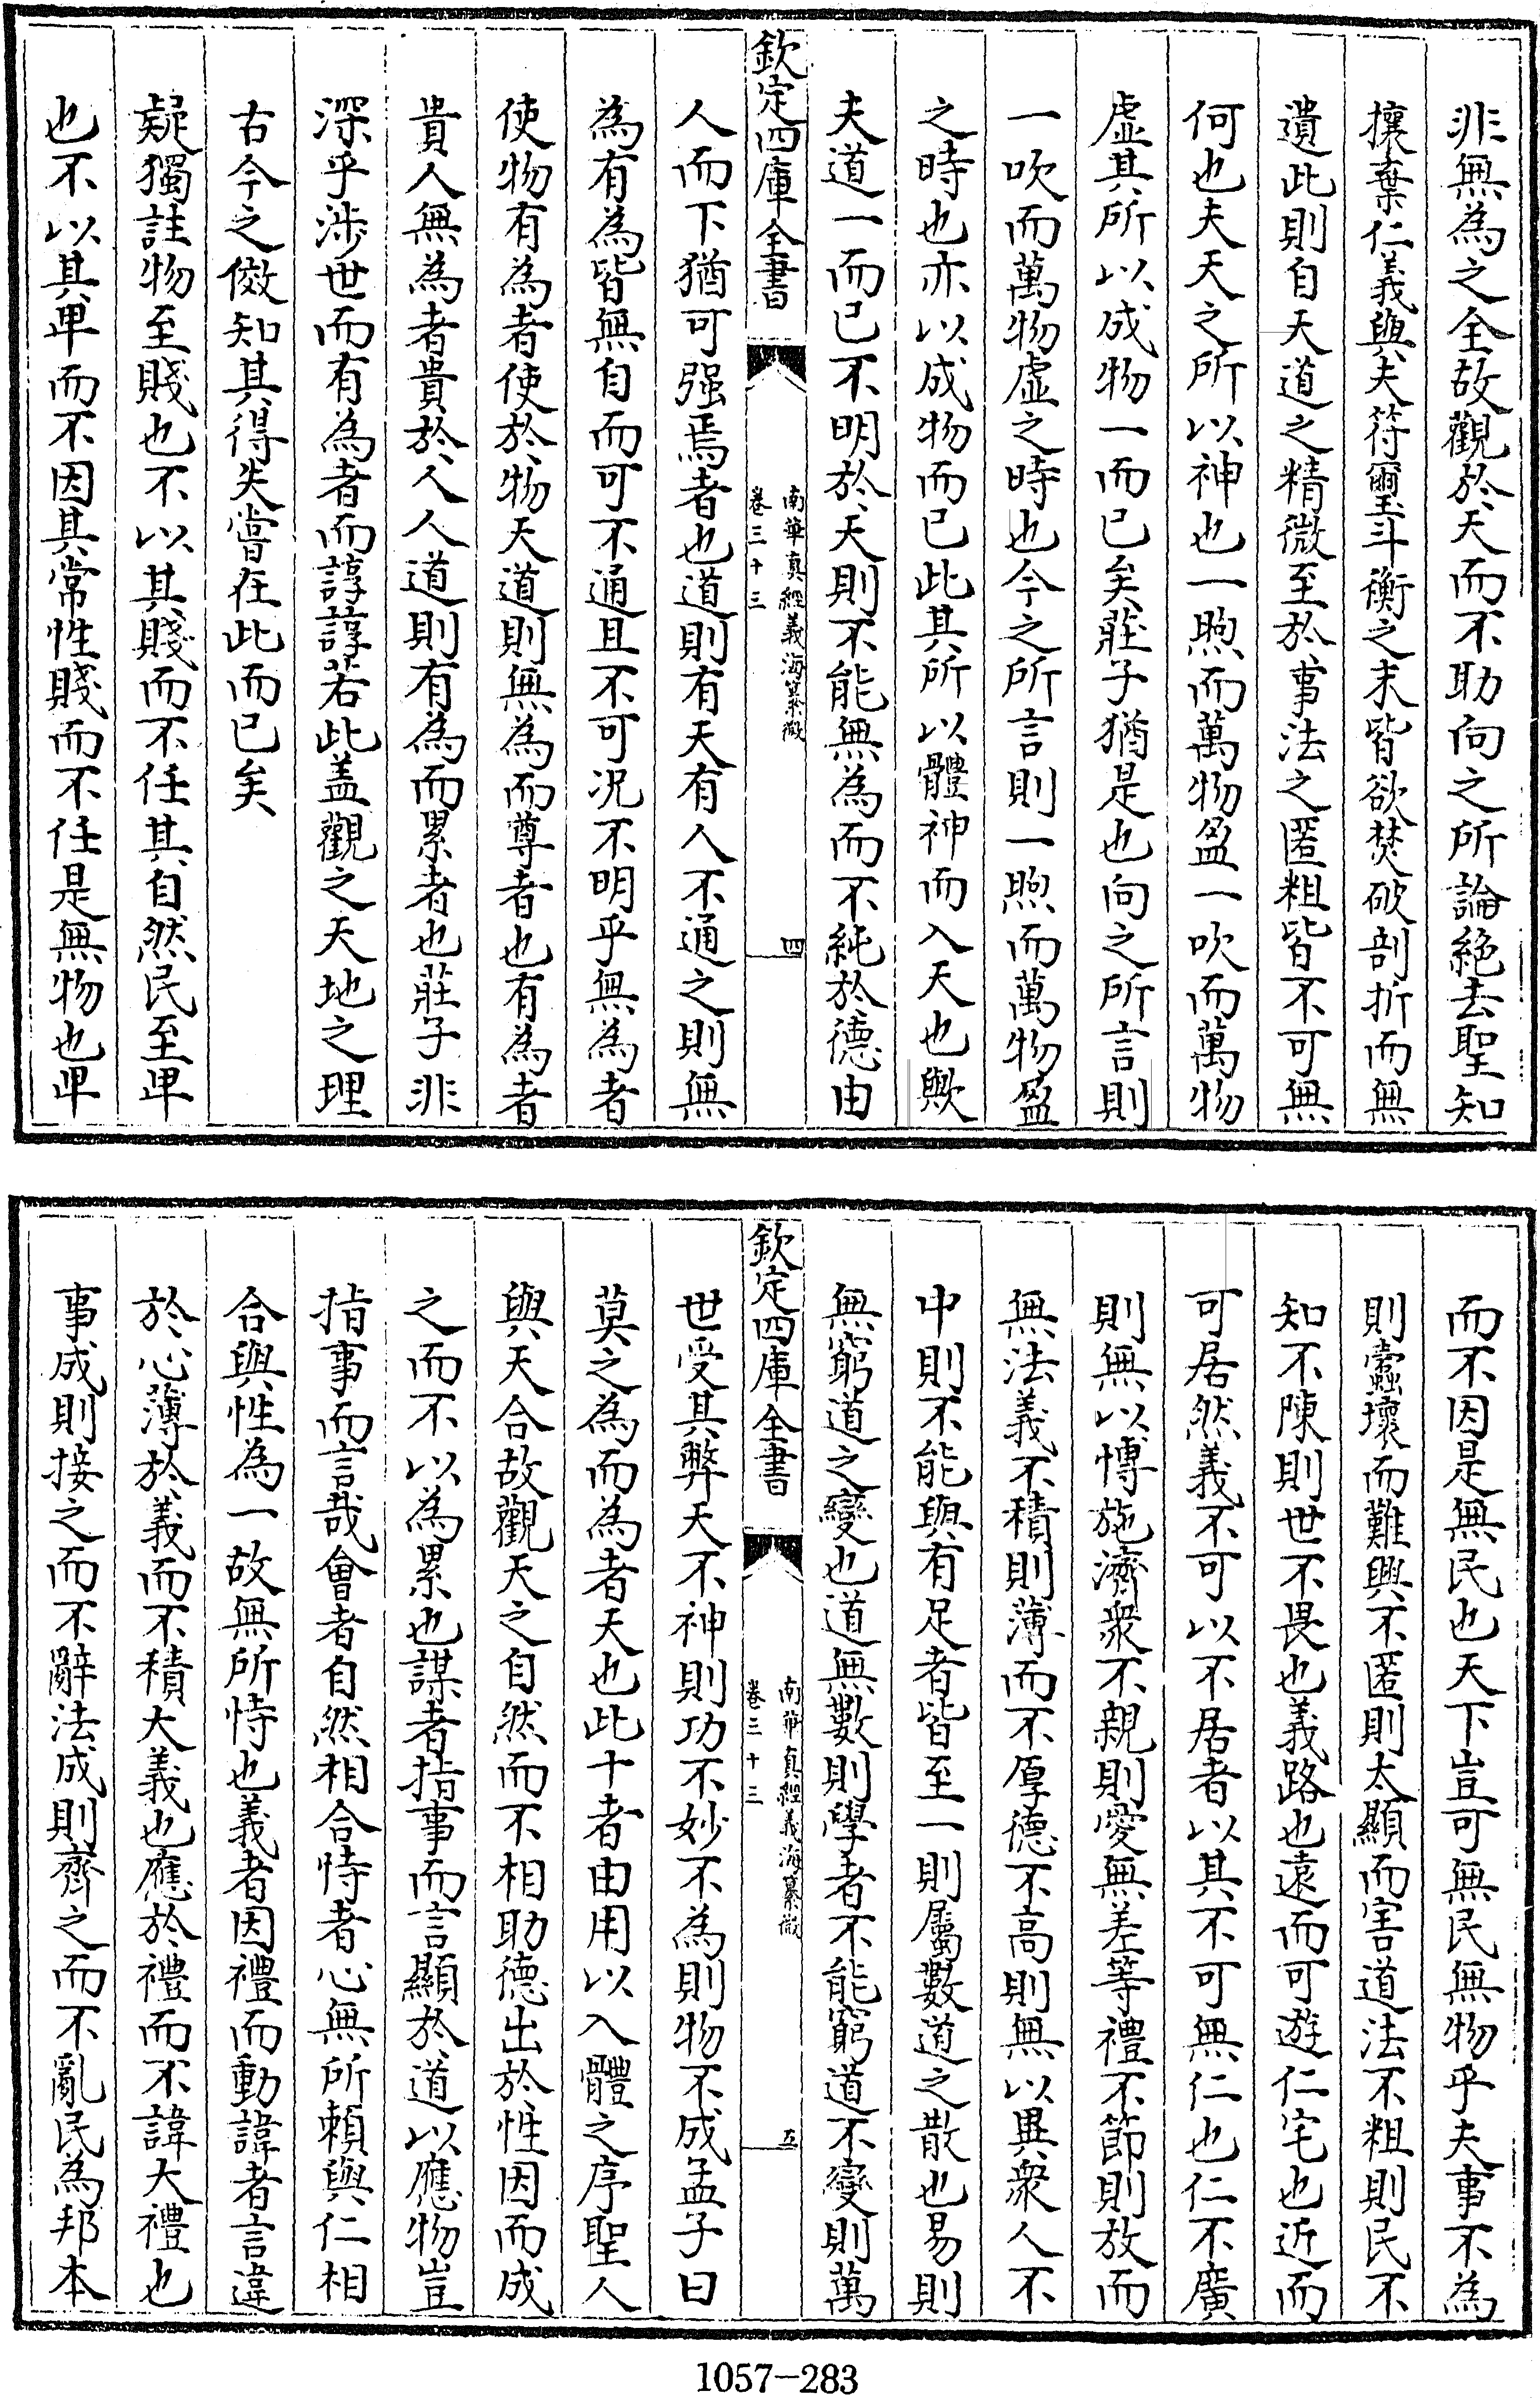 非無為之全故觀於天而不助向之所論絶去聖知
攘棄仁義與夫符璽斗衡之末皆欲焚破剖折而無
遺此則自天道之精微至於事法之匿粗皆不可無
何也夫天之所以神也一煦而萬物盈一吹而萬物
虛其所以成物一而已矣莊子猶是也向之所言則
一吹而萬物虛之時也今之所言則一煦而萬物盈
之時也亦以成物而已此其所以體神而入天也歟
夫道一而已不明於天則不能無為而不純於德由
欽定四庫全書
南華真經義海纂微
卷三十三
四
人而下猶可强焉者也道則有天有人不通之則無
為有為皆無自而可不通且不可况不明乎無為者
使物有為者使於物天道則無為而尊者也有為者
貴人無為者貴於人人道則有為而累者也莊子非
深乎渉世而有為者而諄諄若此盖觀之天地之理
古今之儆知其得失嘗在此而已矣
疑獨註物至賤也不以其賤而不任其自然民至卑
也不以其卑而不因其常性賤而不任是無物也卑
而不因是無民也天下豈可無民無物乎夫事不為
則蠹壞而難興不匿則太顯而害道法不粗則民不
知不陳則世不畏也義路也遠而可遊仁宅也近而
可居然義不可以不居者以其不可無仁也仁不廣
則無以博施濟衆不親則愛無差等禮不節則放而
無法義不積則薄而不厚德不高則無以異衆人不
中則不能與有足者皆至一則屬數道之散也易則
無窮道之變也道無數則學者不能窮道不變則萬
欽定四庫全書
南華真經義海纂微
卷三十三
五
世受其弊天不神則功不妙不為則物不成孟子曰
莫之為而為者天也此十者由用以入體之序聖人
與天合故觀天之自然而不相助德出於性因而成
之而不以為累也謀者指事而言顯於道以應物豈
指事而言哉會者自然相合恃者心無所賴與仁相
合與性為一故無所恃也義者因禮而動諱者言違
於心薄於義而不積大義也應於禮而不諱大禮也
事成則接之而不辭法成則齊之而不亂民為邦本
1057-283